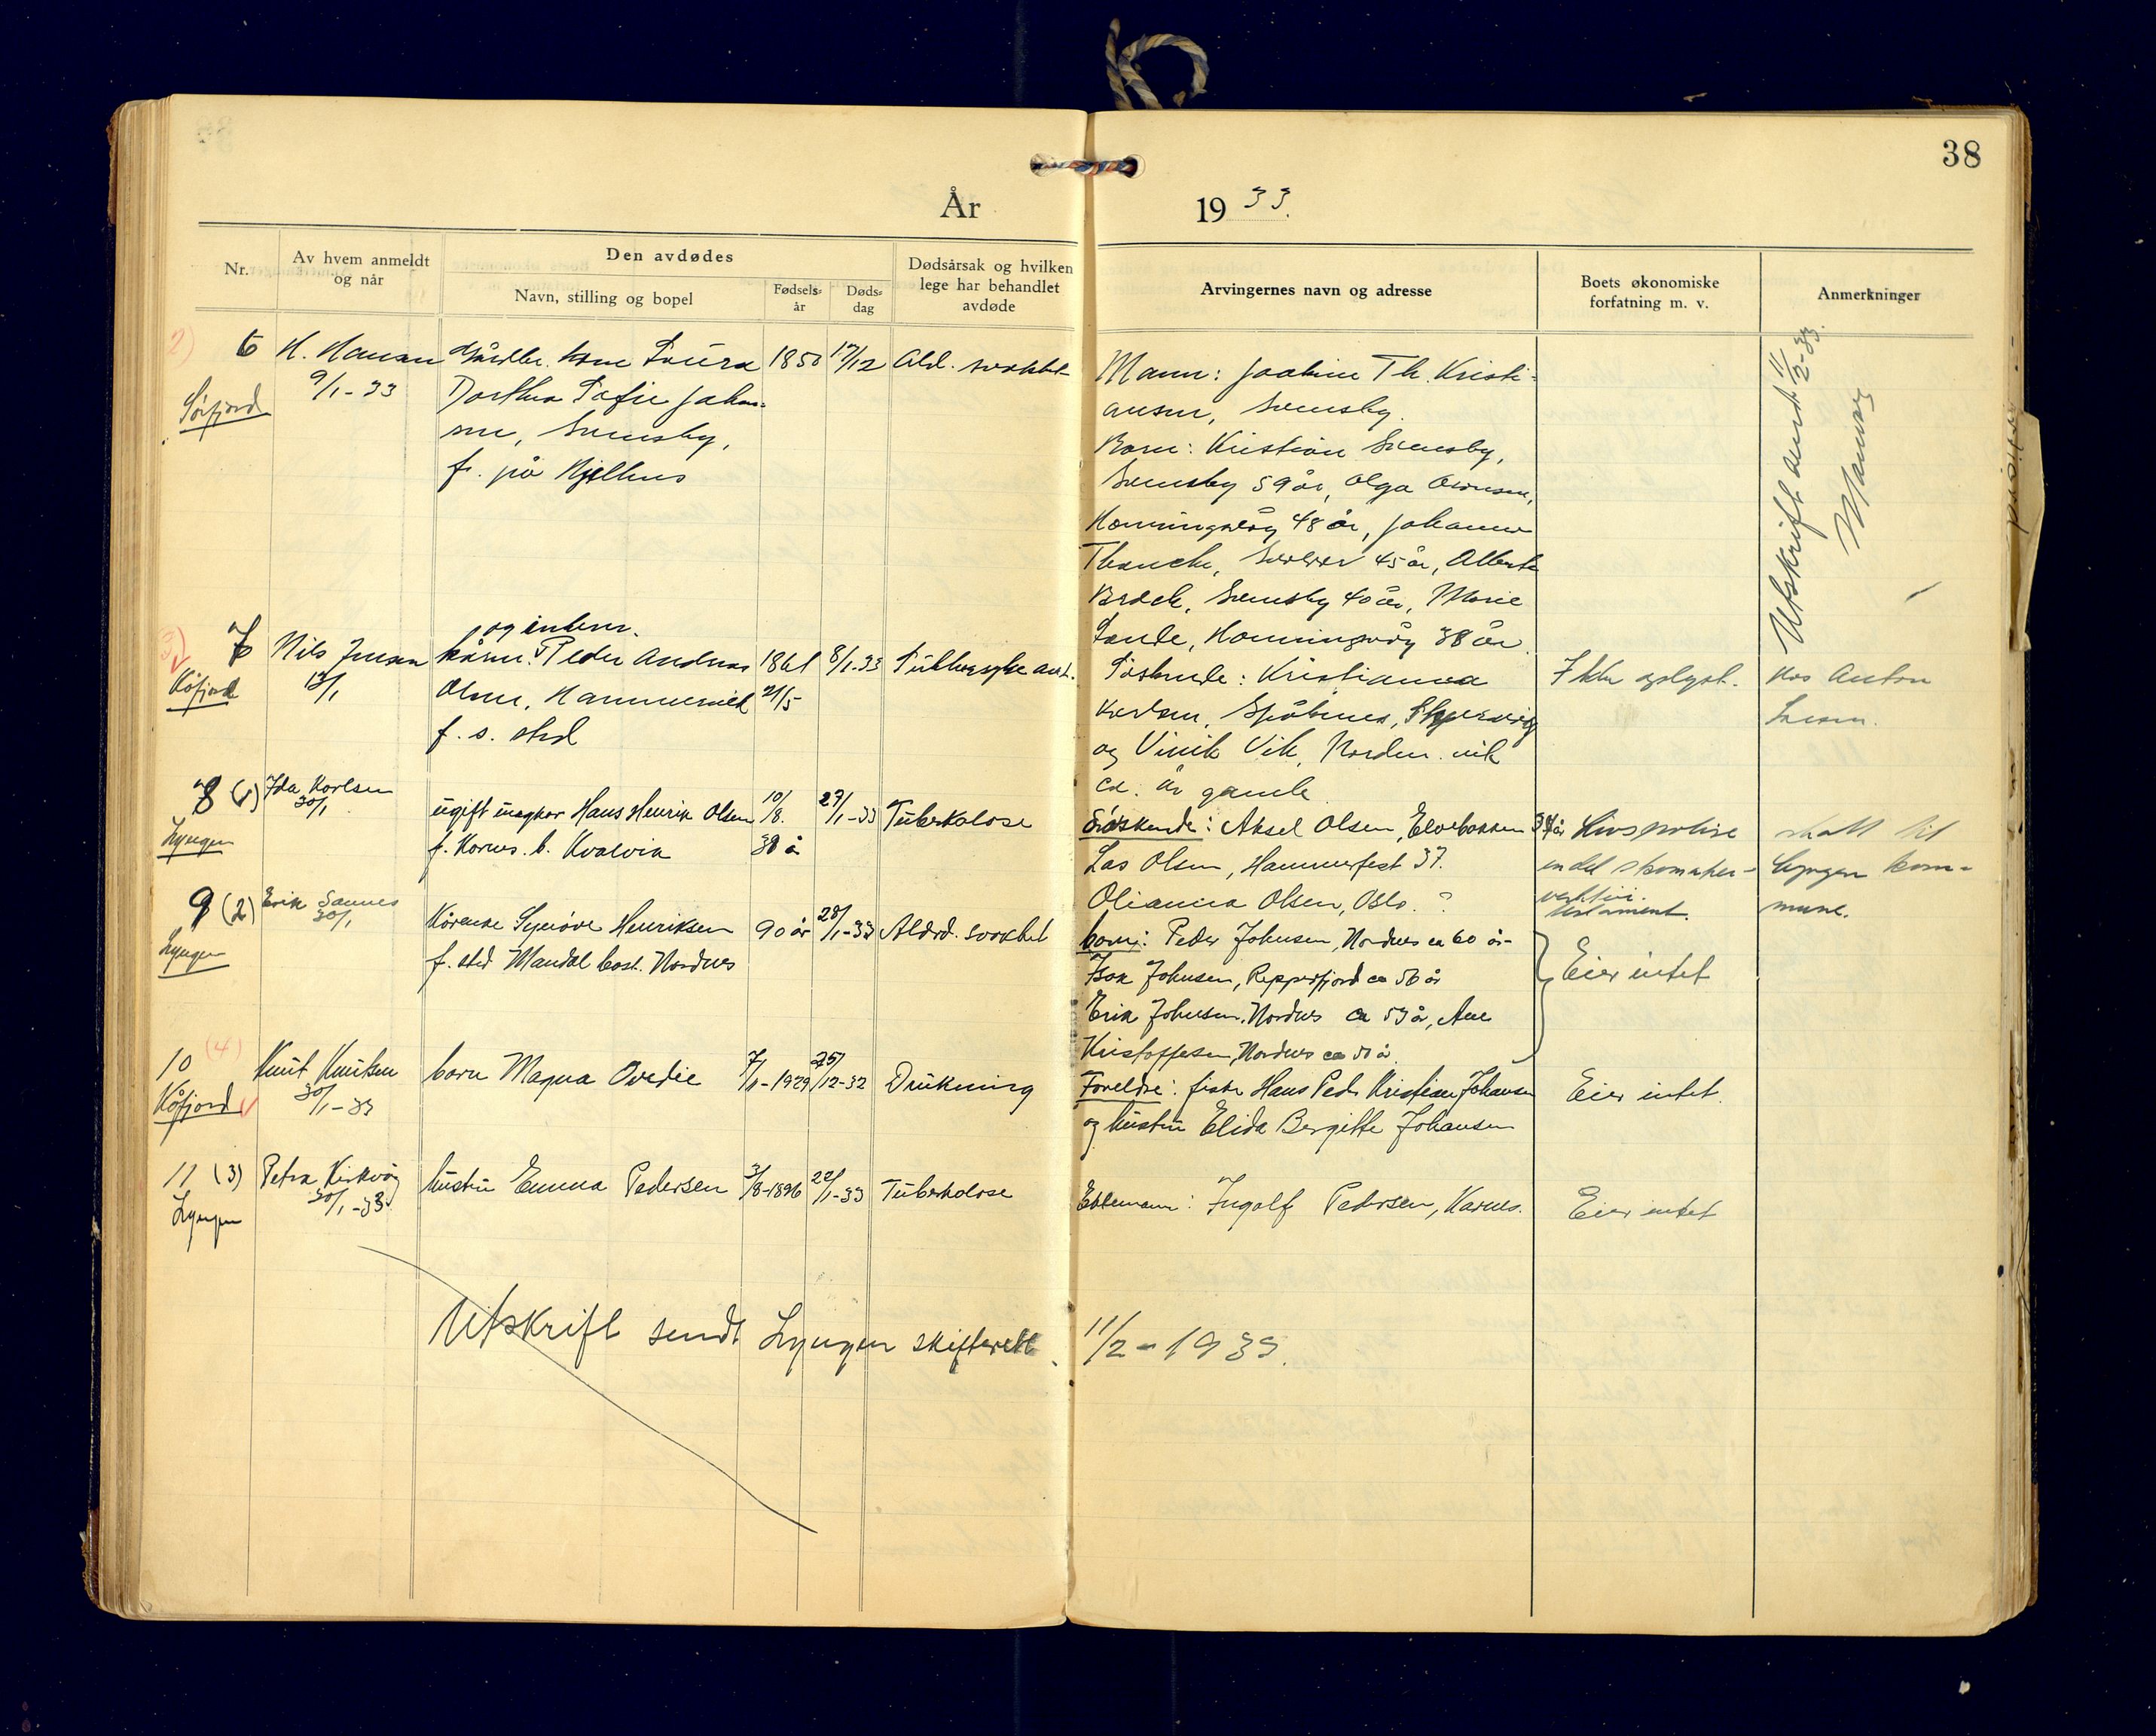 38
År 1933.
Nr.
Av hvem anmeldt og når
Den avdødes
Navn, stilling og bopel
Fødselsår
Dødsdag
Dødsårsak og hvilken lege har behandlet avdøde
Arvingernes navn og adresse
Boets økonomiske forfatning m. v.
Anmerkninger
2) 6
Sørfjord
H. Hansen
9/1-33
Dorthea Sofie Johan-
sen, Svensby,
f. på
1850
17/12
Ald. svakhet
Mann: Joakim Th. Kristi-
ansen, Svensby.
Barn: Kristian Svensby,
Svensby 59 år, Olga
Honningsvåg 48 år, Johanne
45 år, Alberte
Svensby 40 år, Marie
Honningsvåg 38 år.
Utskrift sendt 11/2-33.
Hansen
7
Kåfjord
Nils Jensen
13/1
og inderst
Peder Andreas
Olsen, Hammervik
f. s. sted
1861
21/5
8/1-33
Søskende: Kristianna
Karlsen, Spåknes, Skjervøy
og Vinik Vik, Norden. vik
ca. år gamle
Ikke oplyst.
Hos Anton
8 (1)
Lyngen
Ida Karlsen
30/1
ugift ungkar Hans Henrik Olsen
f. Karnes. b. Kvalvik
10/8.
38 å
27/1-33
Tuberkolose
Søskende: Aksel Olsen, Elvebakken 34 år
Las Olsen, Hammerfest 37.
Olianna Olsen, Oslo. ?
Livspolise
en del skomaker-
verktøi.
testament.
skatt til
Lyngen kom-
mune.
9 (2)
Lyngen
Erik Sannes
30/1
Kårenke Synøve Henriksen
f. sted Mandal bost. Nordnes
90 år
28/1-33
Alderd. svakhet
barn: Peder Johnsen, Nordnes ca 60 år-
Isak Johnsen, Repparfjord ca 56 år
Erik Johnsen, Nordnes ca 53 år, Ane
Kristoffesen, Nordnes ca 50 år
Eier intet
10 (4)
Kåfjord
Knut Knutsen
30/1-33
barn Magna Ovedie
7/1-1929
25/12-32
Drukning
Foreldre: fisker Hans Peder Kristian Johansen
og hustru Elida Bergitte Johansen
Eier intet.
11 (3)
Lyngen
Petra Kirkvåg
30/1-33
hustru Emma Pedersen
3/8-1896
22/1-33
Tuberkolose
Ektemann: Ingolf Pedersen, Karnes.
Eier intet
Utskrift sendt Lyngen skifterett. 11/2-1933.